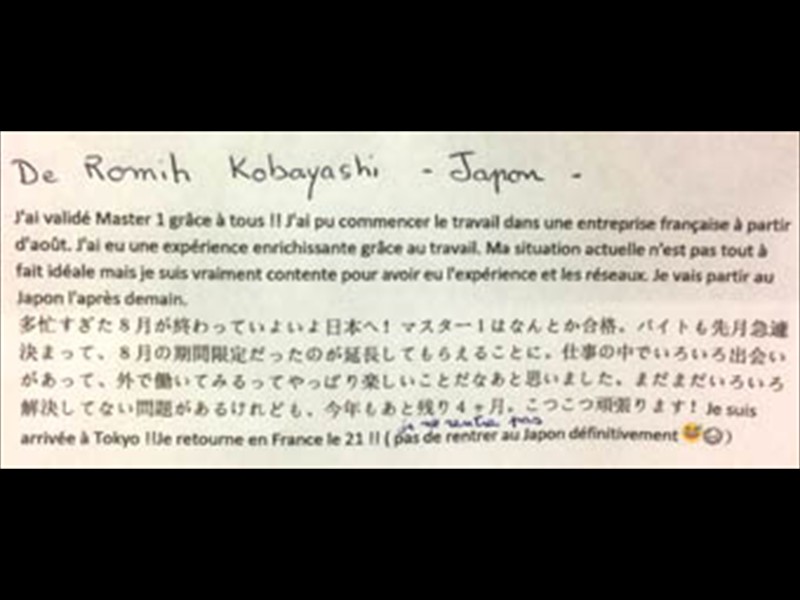 De Romih Kobayashi - Japon -
J'ai validé Master 1 grâce à tous !! J'ai pu commencer le travail dans une entreprise française à partir
d'août. J'ai eu une expérience enrichissante grâce au travail. Ma situation actuelle n'est pas tout à
fait idéale mais je suis vraiment contente pour avoir eu l'expérience et les réseaux. Je vais partir au
Japon l'après demain.
多忙すぎた８月が終わっていよいよ日本へ！マスター１はなんとか合格。バイトも先月急遽
決まって、８月の期間限定だったのが延長してもらえることに。仕事の中でいろいろ出会い
があって、外で働いてみるってやっぱり楽しいことだなあと思いました。まだまだいろいろ
解決してない問題があるけれども、今年もあと残り４ヶ月。こつこつ頑張ります！Je suis
je ne rentre pas
arrivée à Tokyo !!Je retourne en France le 21 !! ( pas de rentrer au Japon définitivement 😅☺)